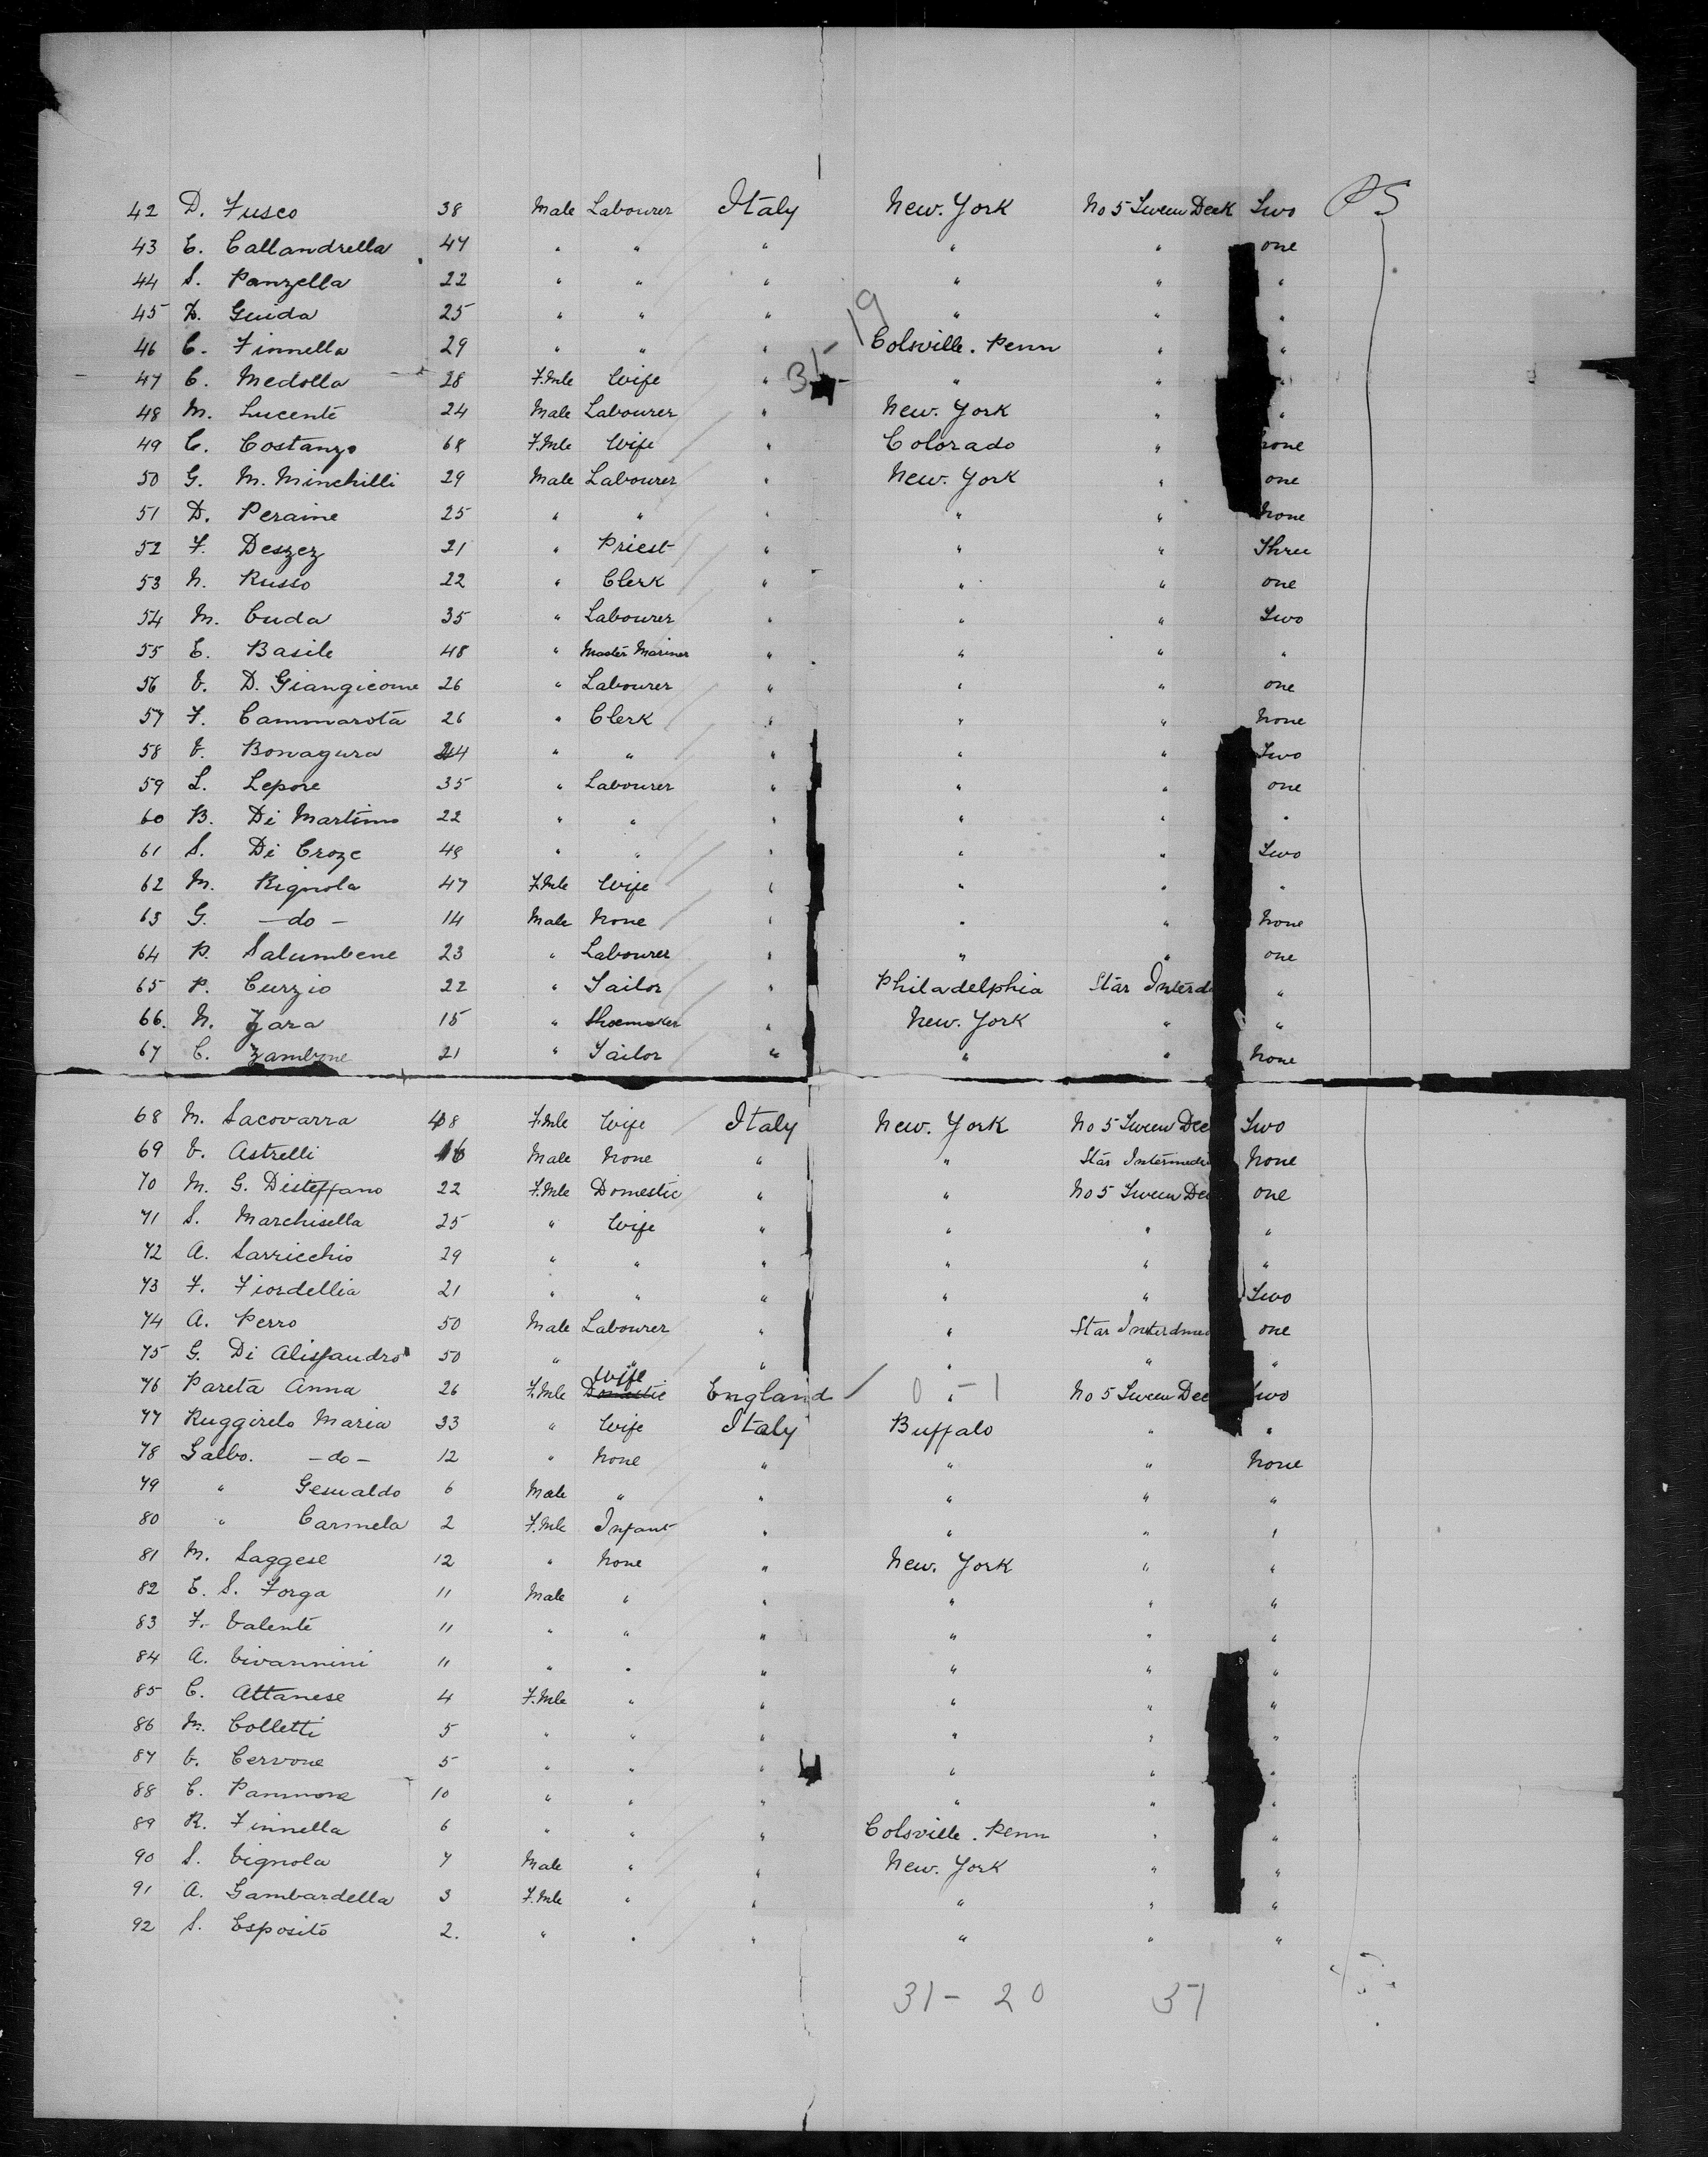 42 D. Fusco 38 Male Labourer Italy New. York No 5 Tween Deck Two PS
43 C. Callandrella 47 " " " " " one
44 S. Panzella 22 " " " " " "
45 D. Guida 25 " " " " " "
19
46 C. Finnella 29 " " " Colsville. Penn " "
47 C. Medolla 28 F.Mle Wife " 31- " " "
48 M. Lucente 24 Male Labourer " New. York " "
49 C. Costanzo 68 F.Mle Wife " Colorado " none
50 G. M. Minchilli 29 Male Labourer " New. York " one
51 D. Peraine 25 " " " " " None
52 F. Deszez 21 " Priest " " " Three
53 N. Russo 22 " Clerk " " " one
54 M. Cuda 35 " Labourer " " " Two
55 E. Basile 48 " Master Mariner " " " "
56 V. D. Giangicome 26 " Labourer " " " one
57 F. Cammarota 26 " Clerk " " " None
58 V. Bonagura 24 " " " " " Two
59 L. Lepore 35 " Labourer " " " one
60 B. Di Martino 22 " " " " " "
61 S. Di Croze 48 " " " " " Two
62 M. Rignola 47 F.Mle Wife " " " "
63 G. - do - 14 Male None " " " None
64 P. Salumbene 23 " Labourer " " " one
65 P. Curzio 22 " Tailor " Philadelphia Star Interd "
66. N. Zara 15 " Shoemaker " New. York " "
67 C. Zambone 21 " Tailor " " " None
68 M. Sacovarra 48 F.Mle Wife Italy New. York No 5 Tween Dec Two
69 V. Astrelli 16 Male None " " Star Intermedi None
70 M. G. Disteffano 22 F.Mle Domestic " " No 5 Tween De one
71 S. Marchisella 25 " Wife " " " "
72 A. Sarricchio 29 " " " " " "
73 F. Fiordellia 21 " " " " " Two
74 A. Perro 50 Male Labourer " " Star Interdmed one
75 G. Di Alissandro 50 " " " " " "
Wife
76 Pareta Anna 26 F.Mle Domestic England 0 - 1 " No 5 Tween Dec Two
77 Ruggirelo Maria 33 " Wife Italy Buffalo " "
78 Galbo. - do - 12 " None " " " None
79 " Gesualdo 6 Male " " " " "
80 " Carmela 2 F.Mle Infant " " " "
81 M. Saggese 12 " None " New. York " "
82 E. S. Forga 11 Male " " " " "
83 F. Valente 11 " " " " " "
84 A. Vivannini 11 " " " " " "
85 C. Attanese 4 F.Mle " " " " "
86 M. Colletti 5 " " " " " "
87 V. Cervone 5 " " " " " "
88 C. Pammora 10 " " " " " "
89 R. Finnella 6 " " " Colsville. Penn " "
90 S. Vignola 7 Male " " New. York " "
91 A. Gambardella 3 F.Mle " " " " "
92 S. Esposito 2. " " " " " "
31- 20 37